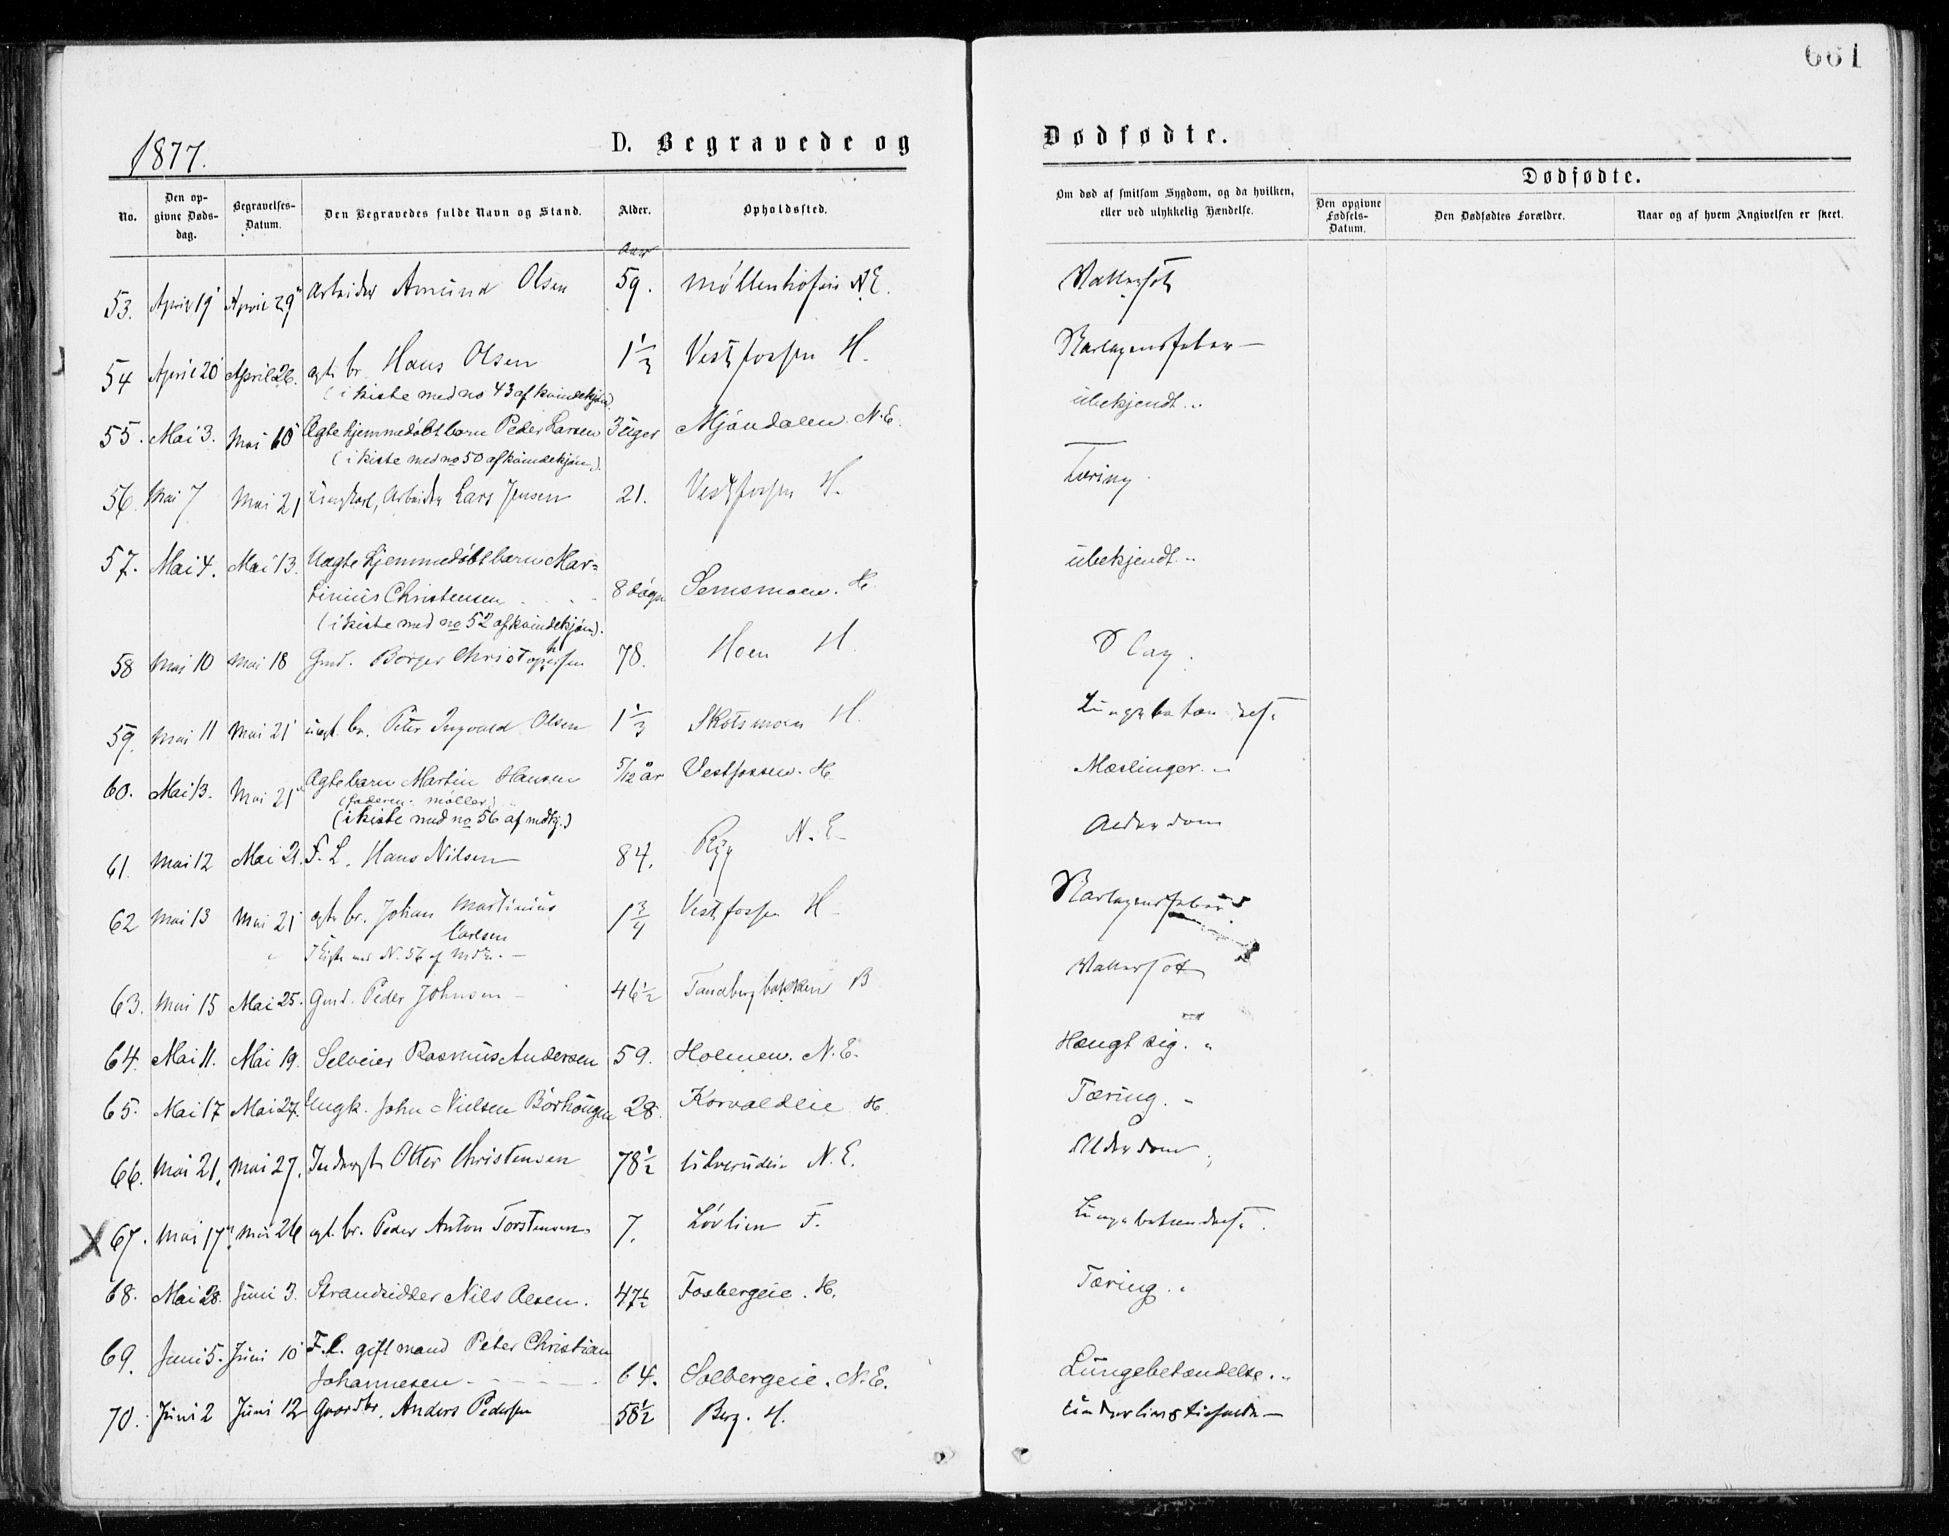 661
1877.
D. Begravede og Dødfødte.
No.
Den opgivne Dødsdag.
Begravelses-Datum.
Den Begravedes fulde Navn og Stand.
Alder.
Opholdssted.
Om død af smitsom Sygdom, og da hvilken, eller ved ulykkelig Hændelse.
Dødfødte.
Den opgivne Fødsels-Datum.
Den Dødfødtes Forældre.
Naar og af hvem Angivelsen er skeet.
53. April 19 April 29 Arbeider Amund Olsen 59. Møllenhofen N.E. Vattersot
54 April 20 April 26. ægte br. Hans Olsen 1 1/3 Vestfossen H. Skarlagensfeber —
(i kiste med no 43 af kvindekjøn)
55. Mai 3. Mai 10 Ægte hjemmedøbt barn Peder Larsen 3 uger Mjøndalen N.E. ubekjendt..
(i kiste med no 50 af kvindekjøn).
56. Mai 7 Mai 21 Ungkarl, Arbeider Lars Jensen 21. Vestfossen H. Tæring.
57. Mai 4. Mai 13. Uægte hjemmedøbt barn Mar=
tinius Christensen 8 døgn Semsmoen. H. ubekjendt..
(i kiste med no 52 af kvindekjøn).
58 Mai 10 Mai 18 Gmd. Borger Christophersen 78. Hoen H. Slag.
59. Mai 11 Mai 21 uægt. br. Peter Ingvald Olsen 1 1/3 Skotsmoen H. Lungebetændelse
60. Mai 13. Mai 21 Ægte barn Martin Hansen 5/12 år Vestfossen. H. Mæslinger.
(faderen: møller)
(i kiste med no 56 af mdkj.)
61. Mai 12 Mai 21. F. L. Hans Nilsen 84. Ryg N.E. Alderdom
62 Mai 13 Mai 21 ægte br. Johan Martinius 1 3/4 Vestfossen H. Skarlagensfeber
Carlsen
I kiste med N. 56 af Mdk. —
63. Mai 15 Mai 25. Gmd. Peder Johnsen 46 1/2 Tandbergbakken B Vattersot
64. Mai 11. Mai 19. Selveier Rasmus Andersen 59. Holmen. N.E. Hængt sig.
65. Mai 17 Mai 27. Ungk. John Nielsen Børhougen 28. Korvaldeie H. Tæring.
66. Mai 21. Mai 27. Inderst Otter Christensen 78 1/2 Ulverudeie N.E. Alderdom
X 67. Mai 17 Mai 26 ægt. br. Peder Anton Torstensen 7. Løvlien F. Lungebetændelse.
68. Mai 28. Juni 3. Strandsidder Nils Olsen. 47 1/2 Fosbergeie. H. Tæring.
69. Juni 5. Juni 10 F.L. gift mand Peter Christian
Johannesen 64. Solbergeie. N.E. Lungebetændelse.
70. Juni 2 Juni 12 Gaardbr. Anders Pedersen 58 1/2 Berg. H. Underlivs